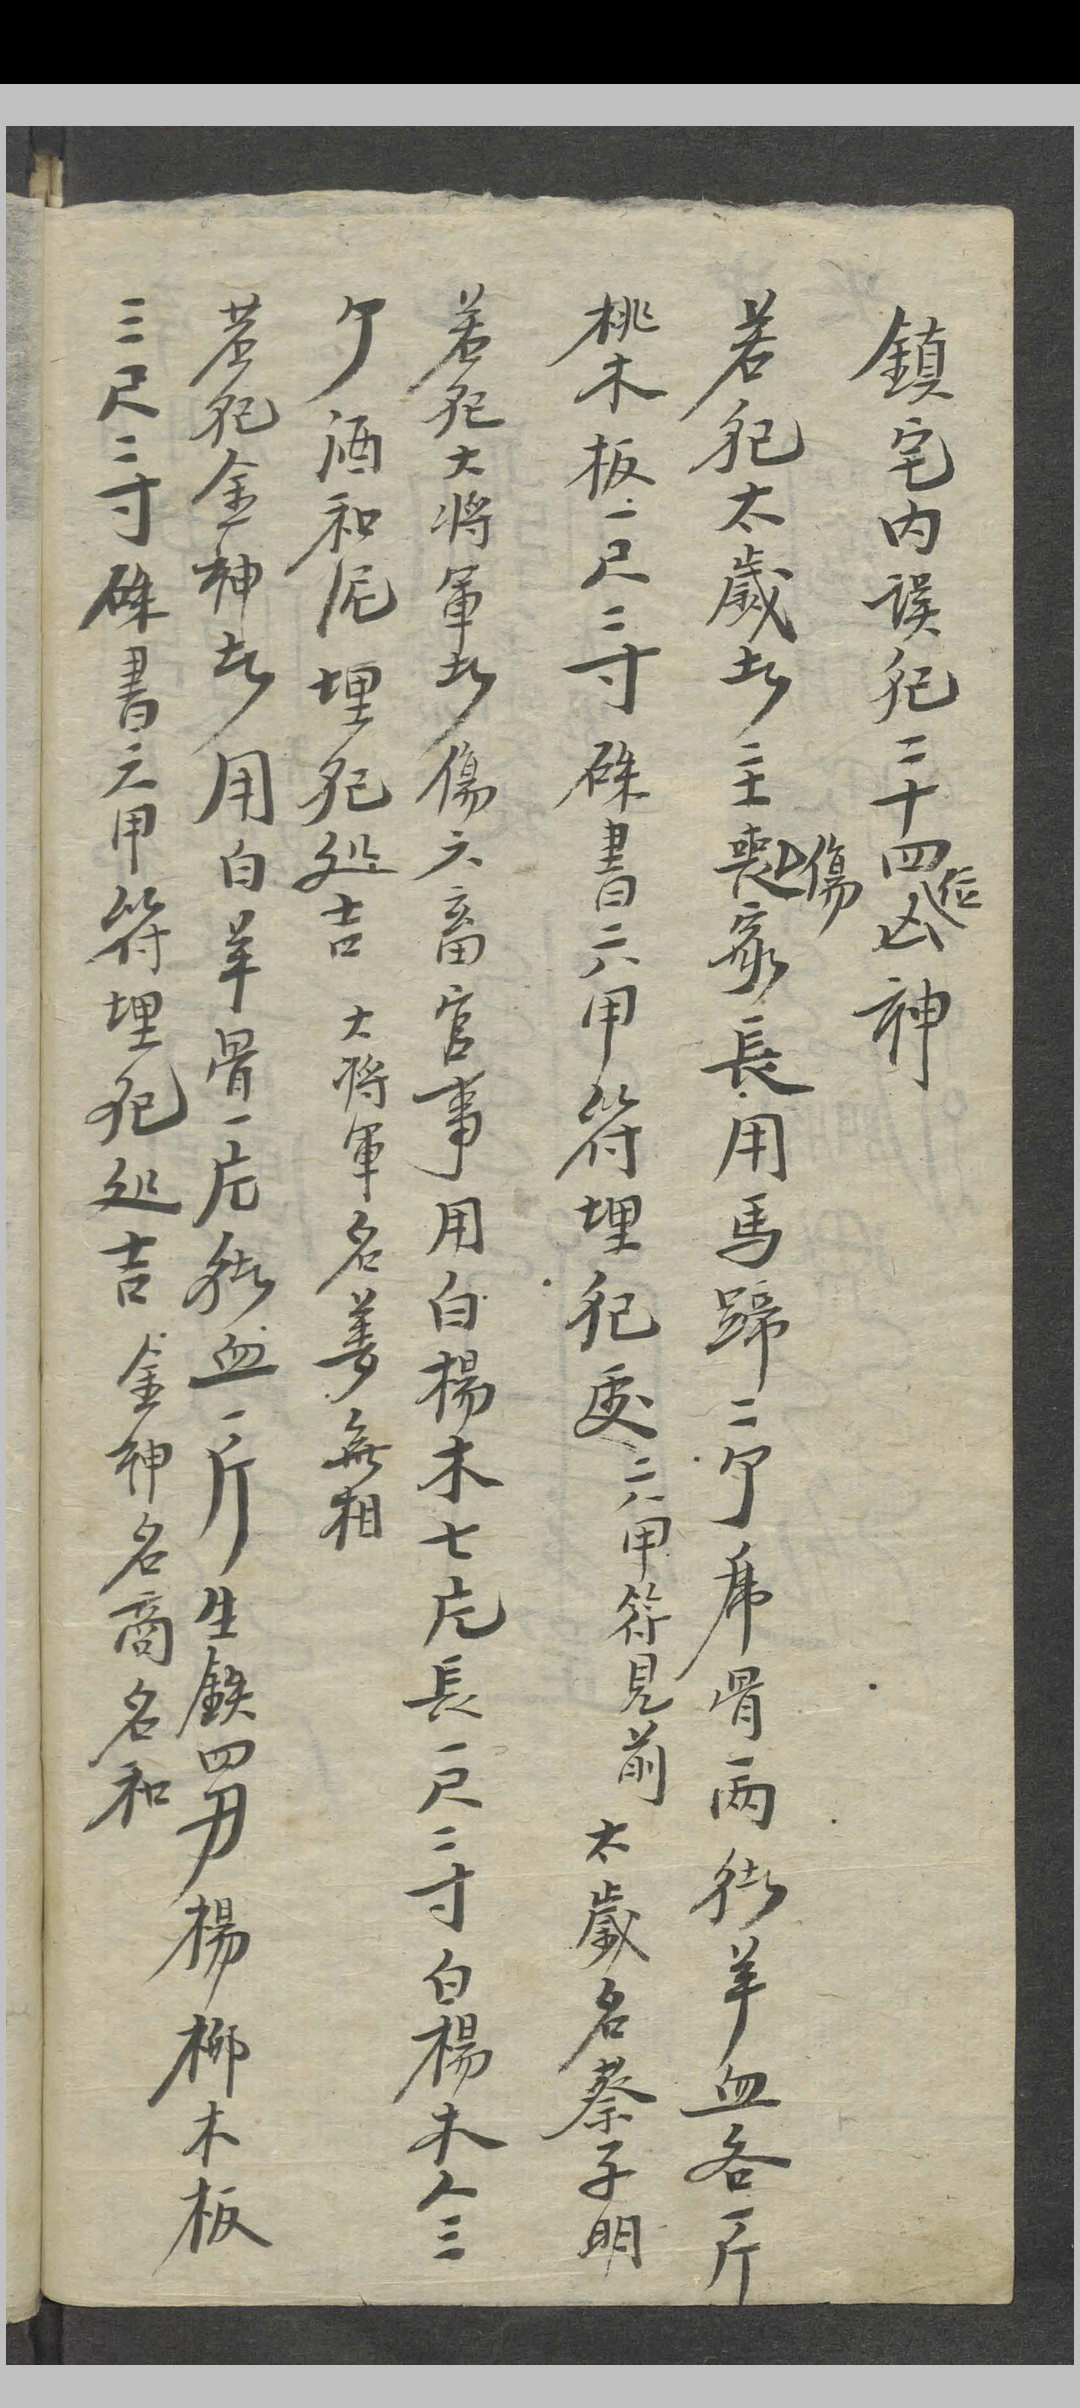 鎮宅内误犯二十四位凶神
若犯太歲者主喪傷家長用馬蹄二个虎骨一两猪羊血各一斤
桃木板一尺二寸硃書六甲符埋犯處六甲符見前太歲名蔡子明
若犯大将軍者傷六畜官事用白楊木七片長一尺二寸白楊木人三
个酒和泥埋犯处吉大将軍名姜無相
若犯金神者用白羊骨一片猪血一斤生鉄四刃楊柳木板
三尺二寸硃書六甲符埋犯处吉金神名商名和